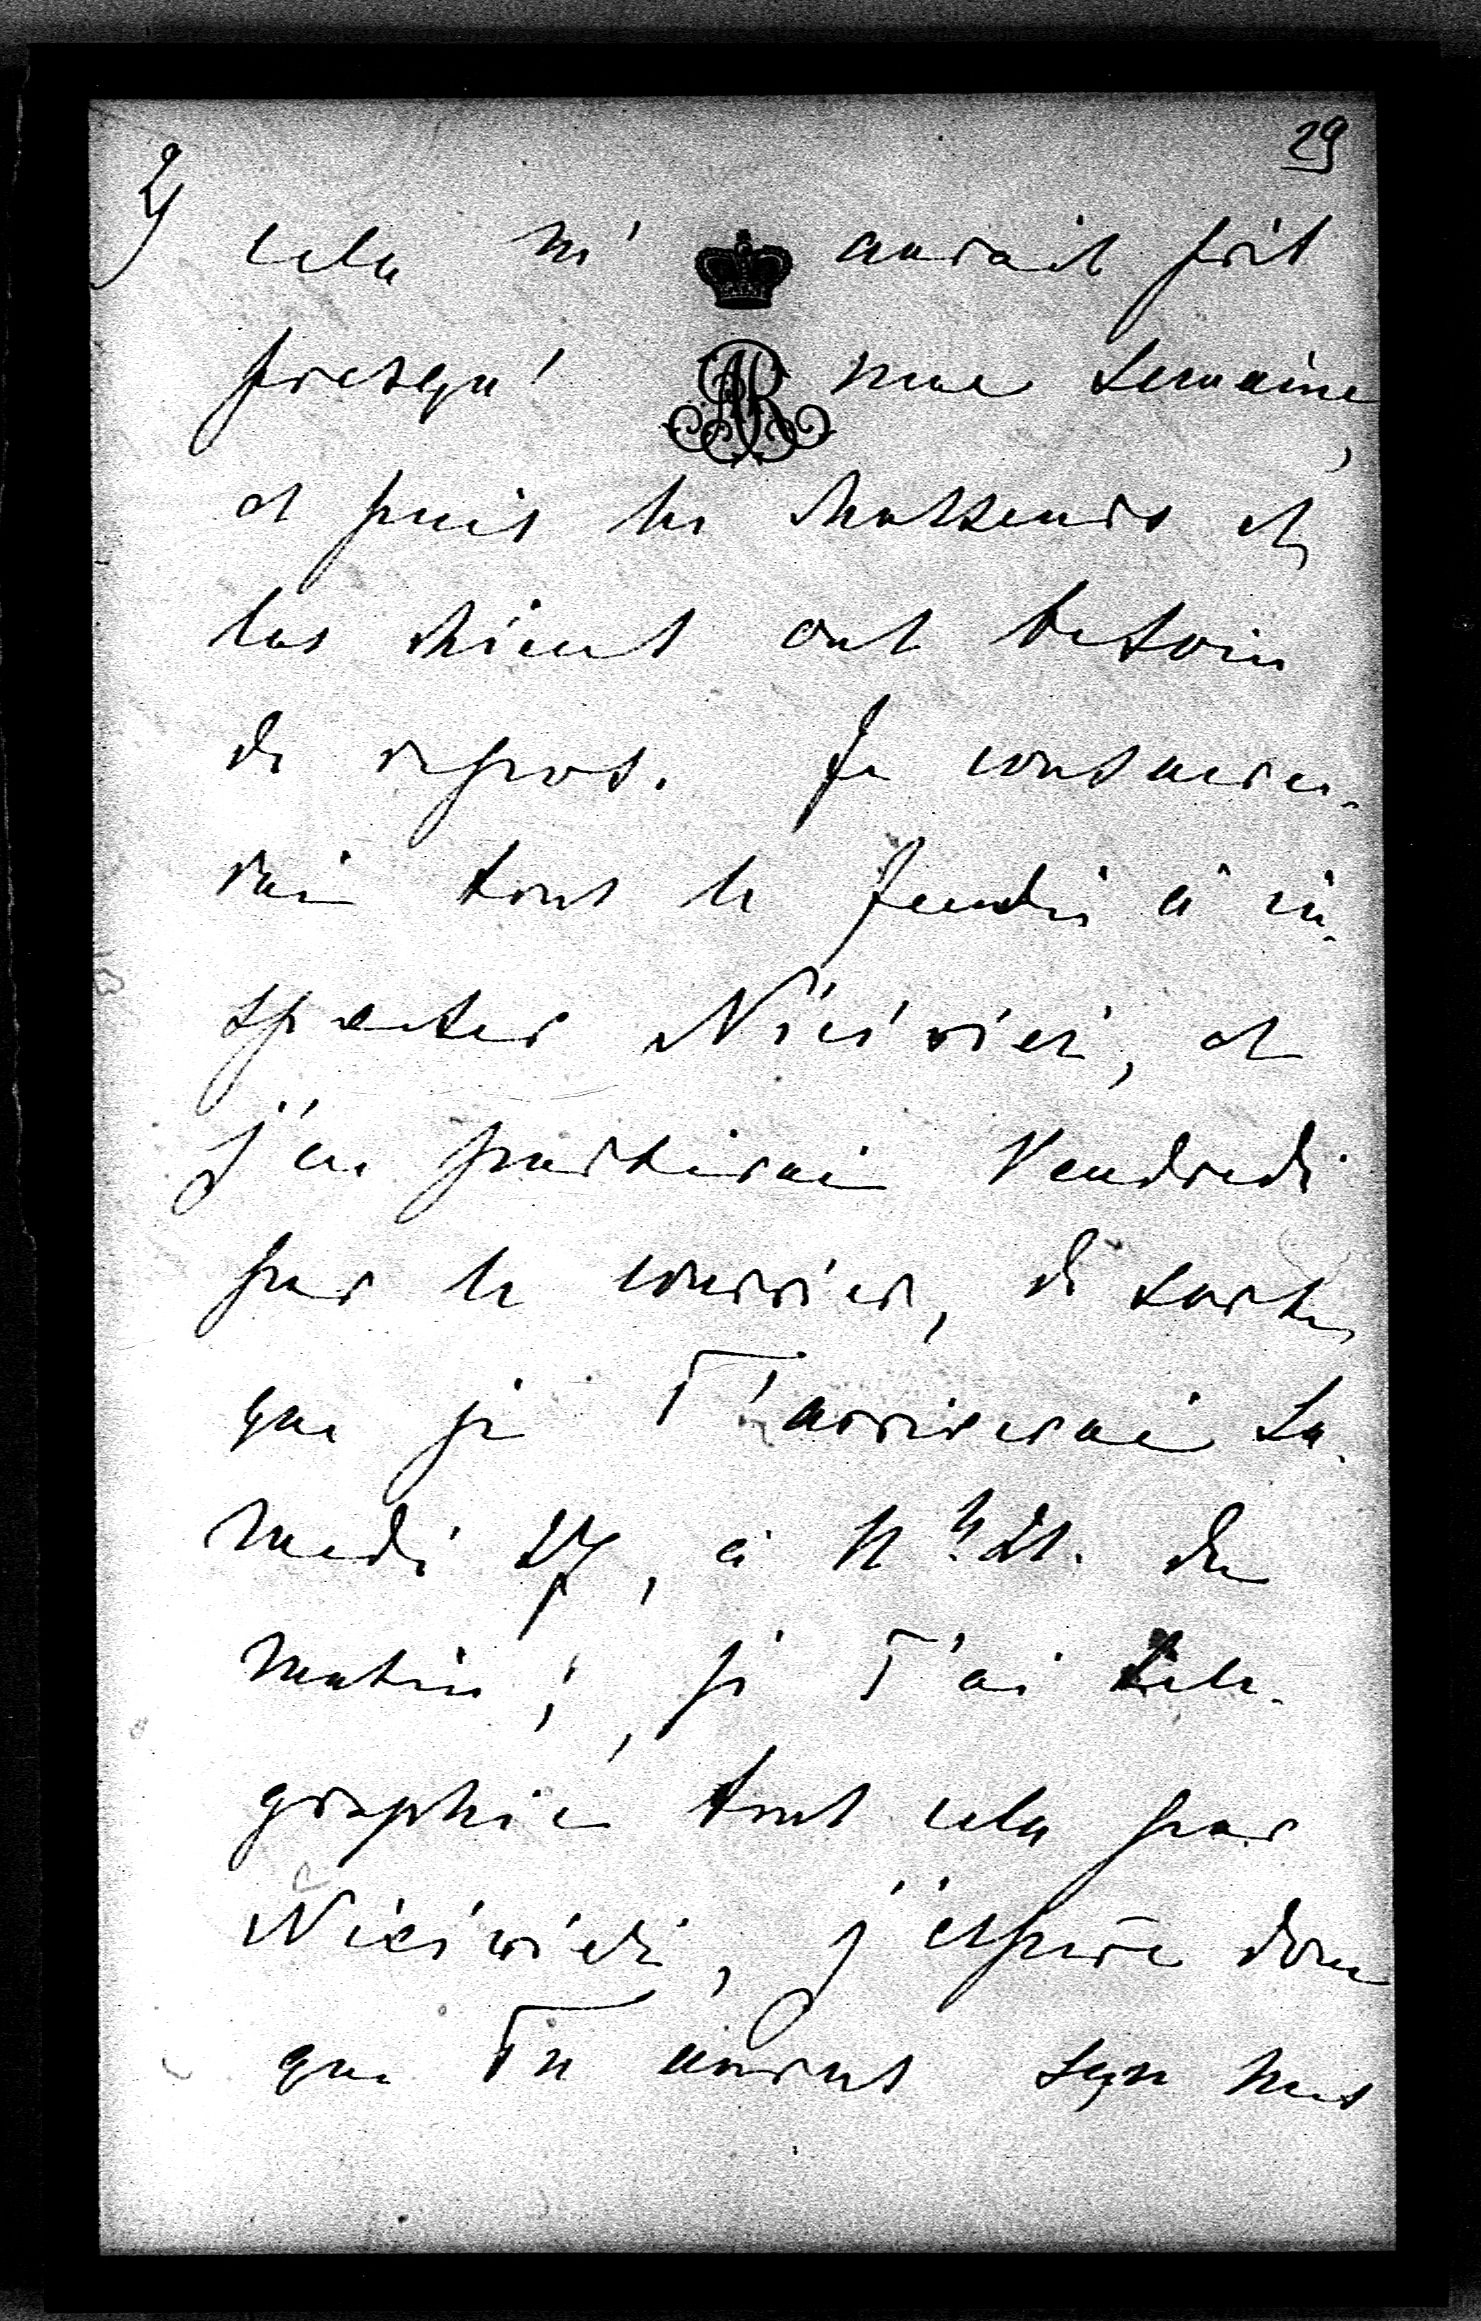 29
2)
cela m' aurait pris
presqu' une semaine,
et puis les chasseurs et
les chiens ont besoin
de repos. Je consacre-
rai tout le Jeudi à in-
specter Nieśwież, et
j'en partirai Vendredi
par le courrier, de sorte
que je T'arriverai Sa-
medi 27, à 11 h. 21. du
matin; je T'ai télé-
graphié tout cela par
j'espère donc
que Tu auras reçu mes